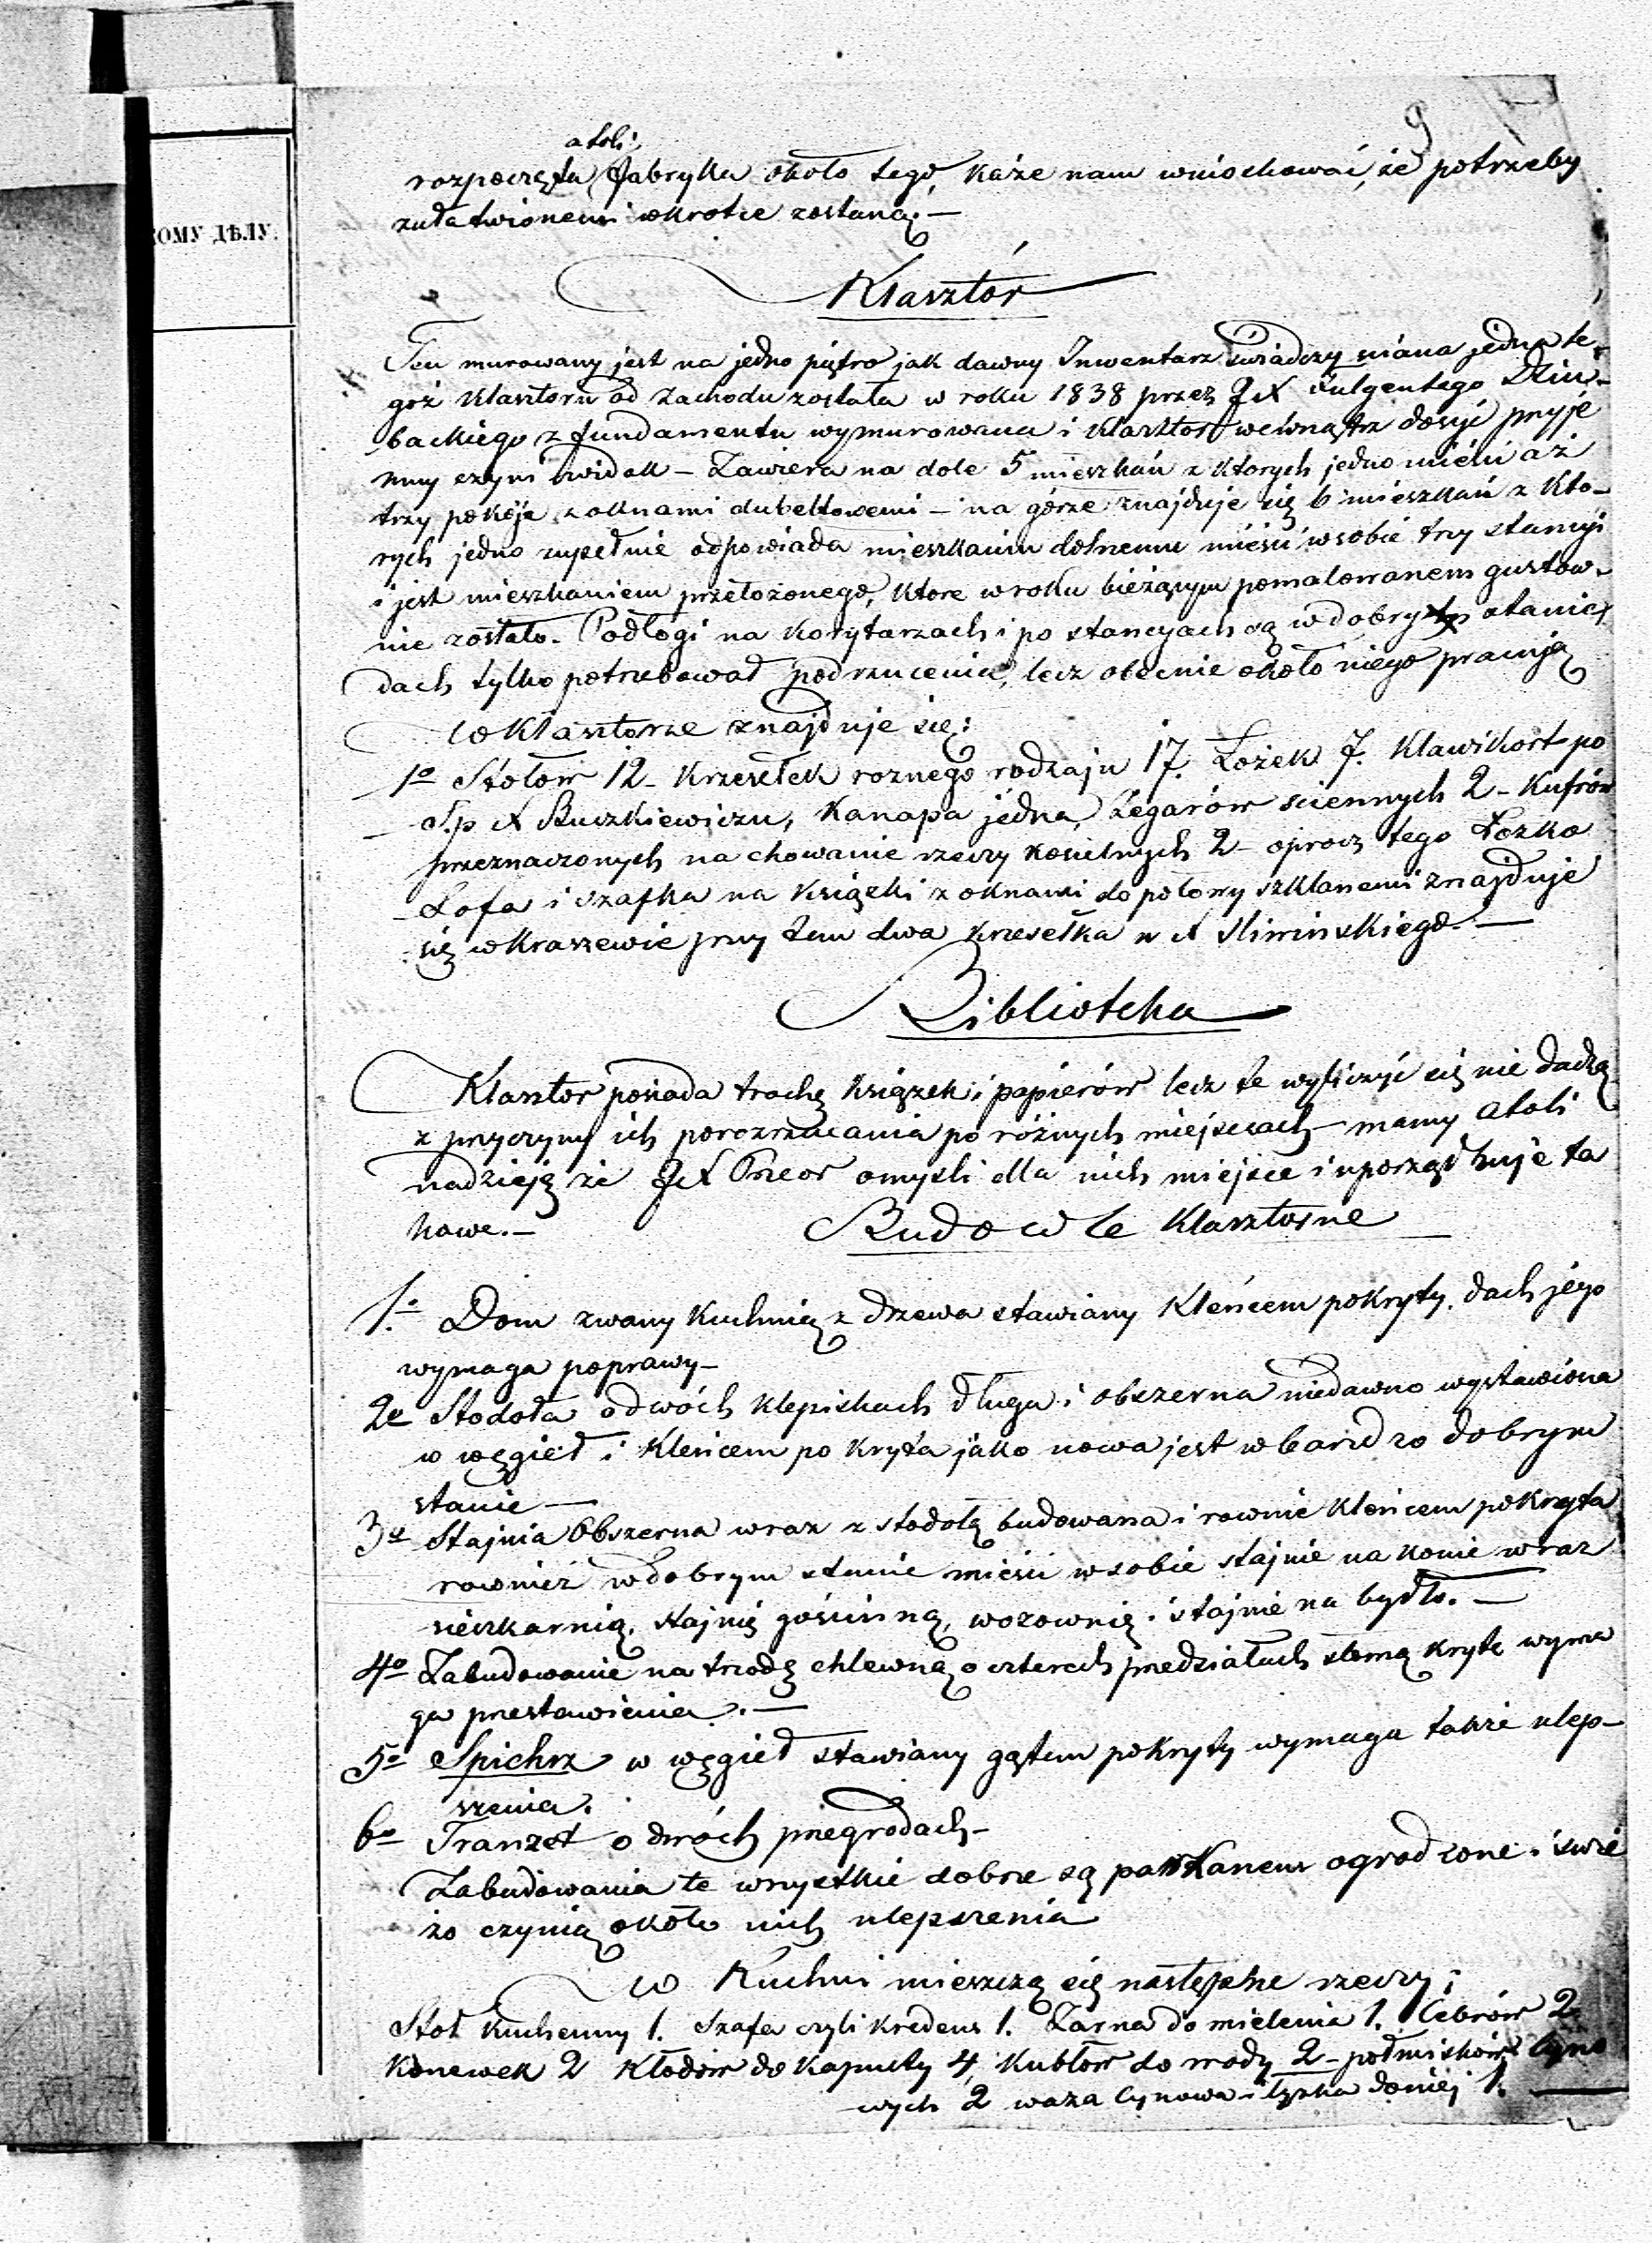 9
atoli
rozpoczęta fabryka około tego, każe nam wniochować, że potrzeby
załatwionemi wkrotce zostaną. —
КОМУ ДѢЛУ.
Klasztór
Ten murowany jest na jedno piętro jak dawny Inwentarz świadczy ściana jedna te-
goż Klasztoru od Zachodu została w roku 1838 przez JX Fulgentego
backiego z fundamentu wymurowana i Klasztor wewnątrz dosyć przyje
mny czyni widok — Zawiera na dole 5 mieszkań z ktorych jedno mieści aż
trzy pokoje z oknami dubeltowemi — na górze znajduje się 6 mieszkań z kto-
rych jedno zupełnie odpowiada mieszkaniu dolnemu mieści w sobie trzy stancyi
i jest mieszkaniem przełożonego, ktore w roku bieżącym pomalowanem gustow-
nie zostało. Podłogi na korytarzach i po stancyach są w dobrym stanie
dach tylko potrzebował podrzucenia, lecz obecnie około niego pracują
W Klasztorze znajduje się:
1o Stołow 12 — Krzesełek roznego rodzaju 17. Łożek 7. Klawikort po
S.p X Buczkiewiczu, Kanapa jedna, Zegarów sciennych 2 — Kufrów
przeznaczonych na chowanie rzeczy koscielnych 2 — oprocz tego Łozko
Sofa i szafka na książki z oknami do połowy szklanemi znajduje
się w Kraszewie przy tem dwa krzesełka u X Sliwinskiego. —
Biblioteka
Klasztor posiada trochę książek i papierów lecz te wyliczyć się nie dadzą
z przyczyny ich porozrzucania po różnych miejscach — mamy atoli
nadzieję że JX Przeor omyśli dla nich miejsce i uporządkuje ta
kowe. —
Budowle Klasztorne
1.o Dom zwany Kuchnią z drzewa stawiany Kleńcem pokryty. dach jego
wymaga poprawy —
2o Stodoła o dwóch klepiskach długa i obszerna niedawno wystawiona
w węgieł i Kleńcem pokryta jako nowa jest w bardzo dobrym
stanie —
3o Stajnia obszerna wraz z stodołą budowana i rownie kleńcem pokryta
rownież w dobrym stanie mieści w sobie stajnie na konie wraz
sieczkarnią, stajnię gościnną, wozownię i stajnie na bydło. —
4o Zabudowanie na trzodę chlewną o czterech przedziałach słomą kryte wyma
ga przestawienia. —
5o Spichrz w węgieł stawiany gątem pokryty wymaga także ulep-
szenia.
6o Tranzet o dwóch przegrodach —
Zabudowania te wszystkie dobrze są parkanem ogrodzone i świe
żo czynią około nich ulepszenia
W Kuchni mieszczą się następne rzeczy:
Stoł kuchenny 1. Szafa czyli kredens 1. Żarna do mielenia 1. Cebrów 2
Konewek 2 Kłodow do kapusty 4, Kubłow do wody 2 — połmisków cyno
wych 2 waza cynowa i łyzka do niej 1. —